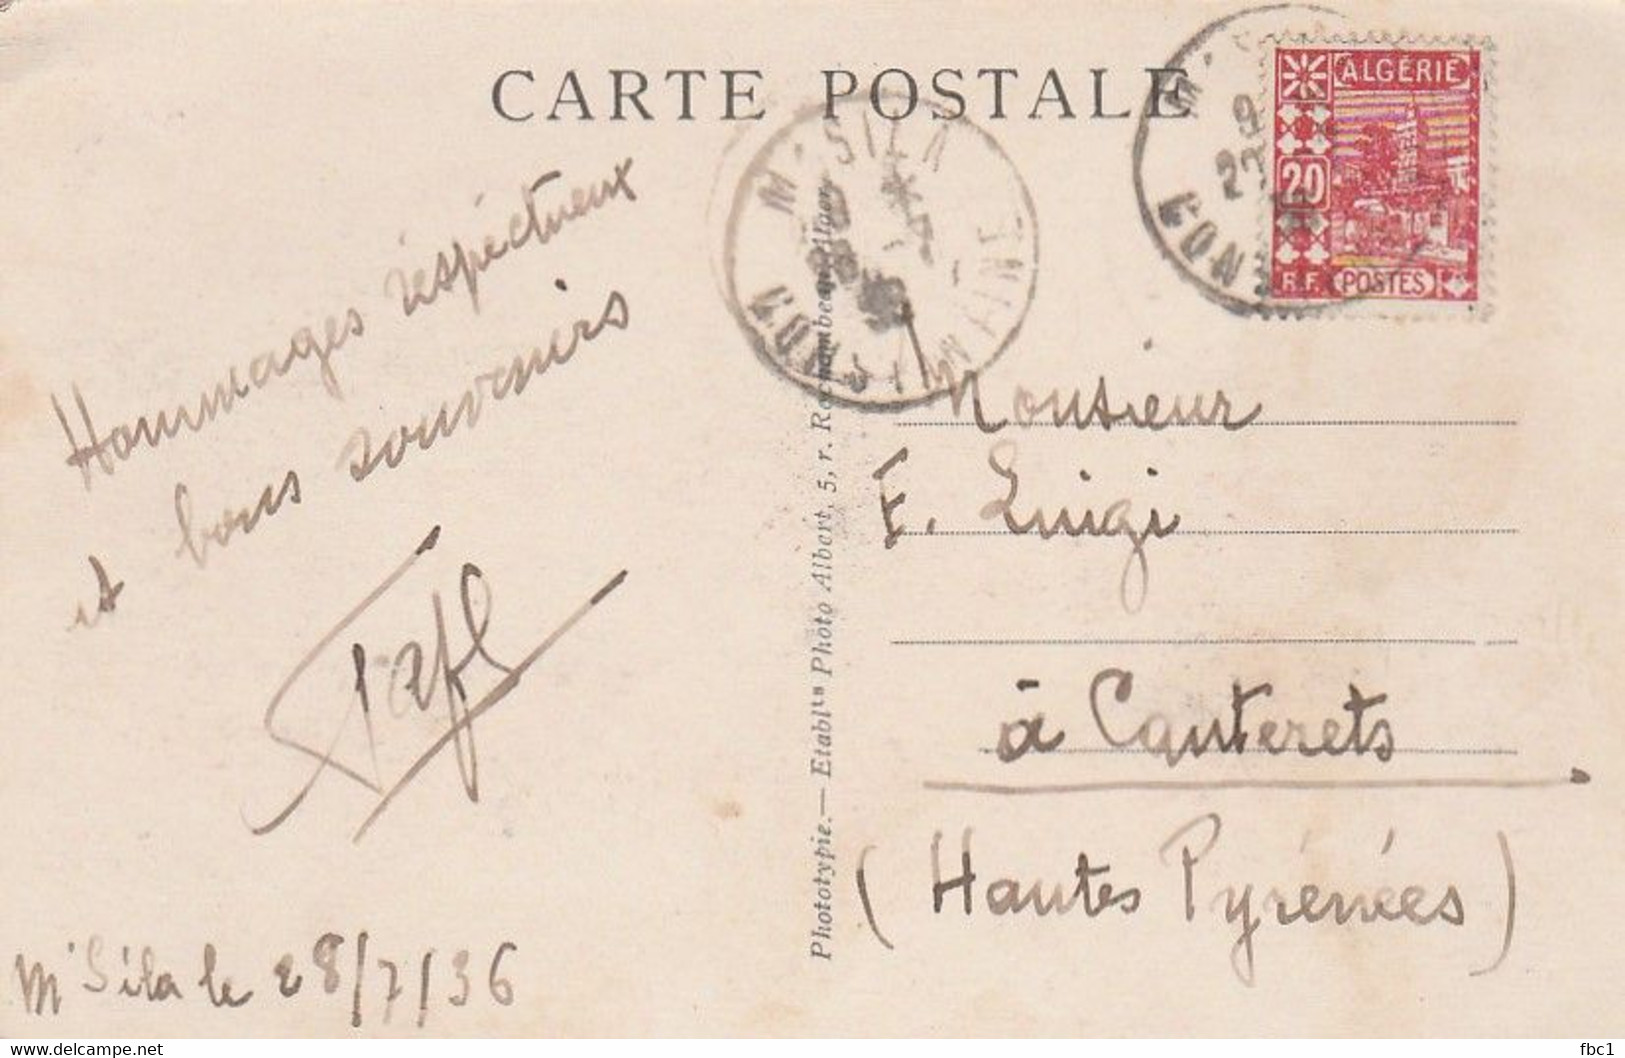 CARTE POSTALE
ALGÉRIE
20
R.F. POSTES
M'SILA
CONSTANTINE
Hommages réspéctueux
et bons souvenirs
M'Sila le 28/7/36
Phototypie.— Etablts Photo Albert, 5, r. Rochambeau, Alger
Monsieur
E. Luigi
à Cauterets
(Hautes Pyrénées)
fbc1